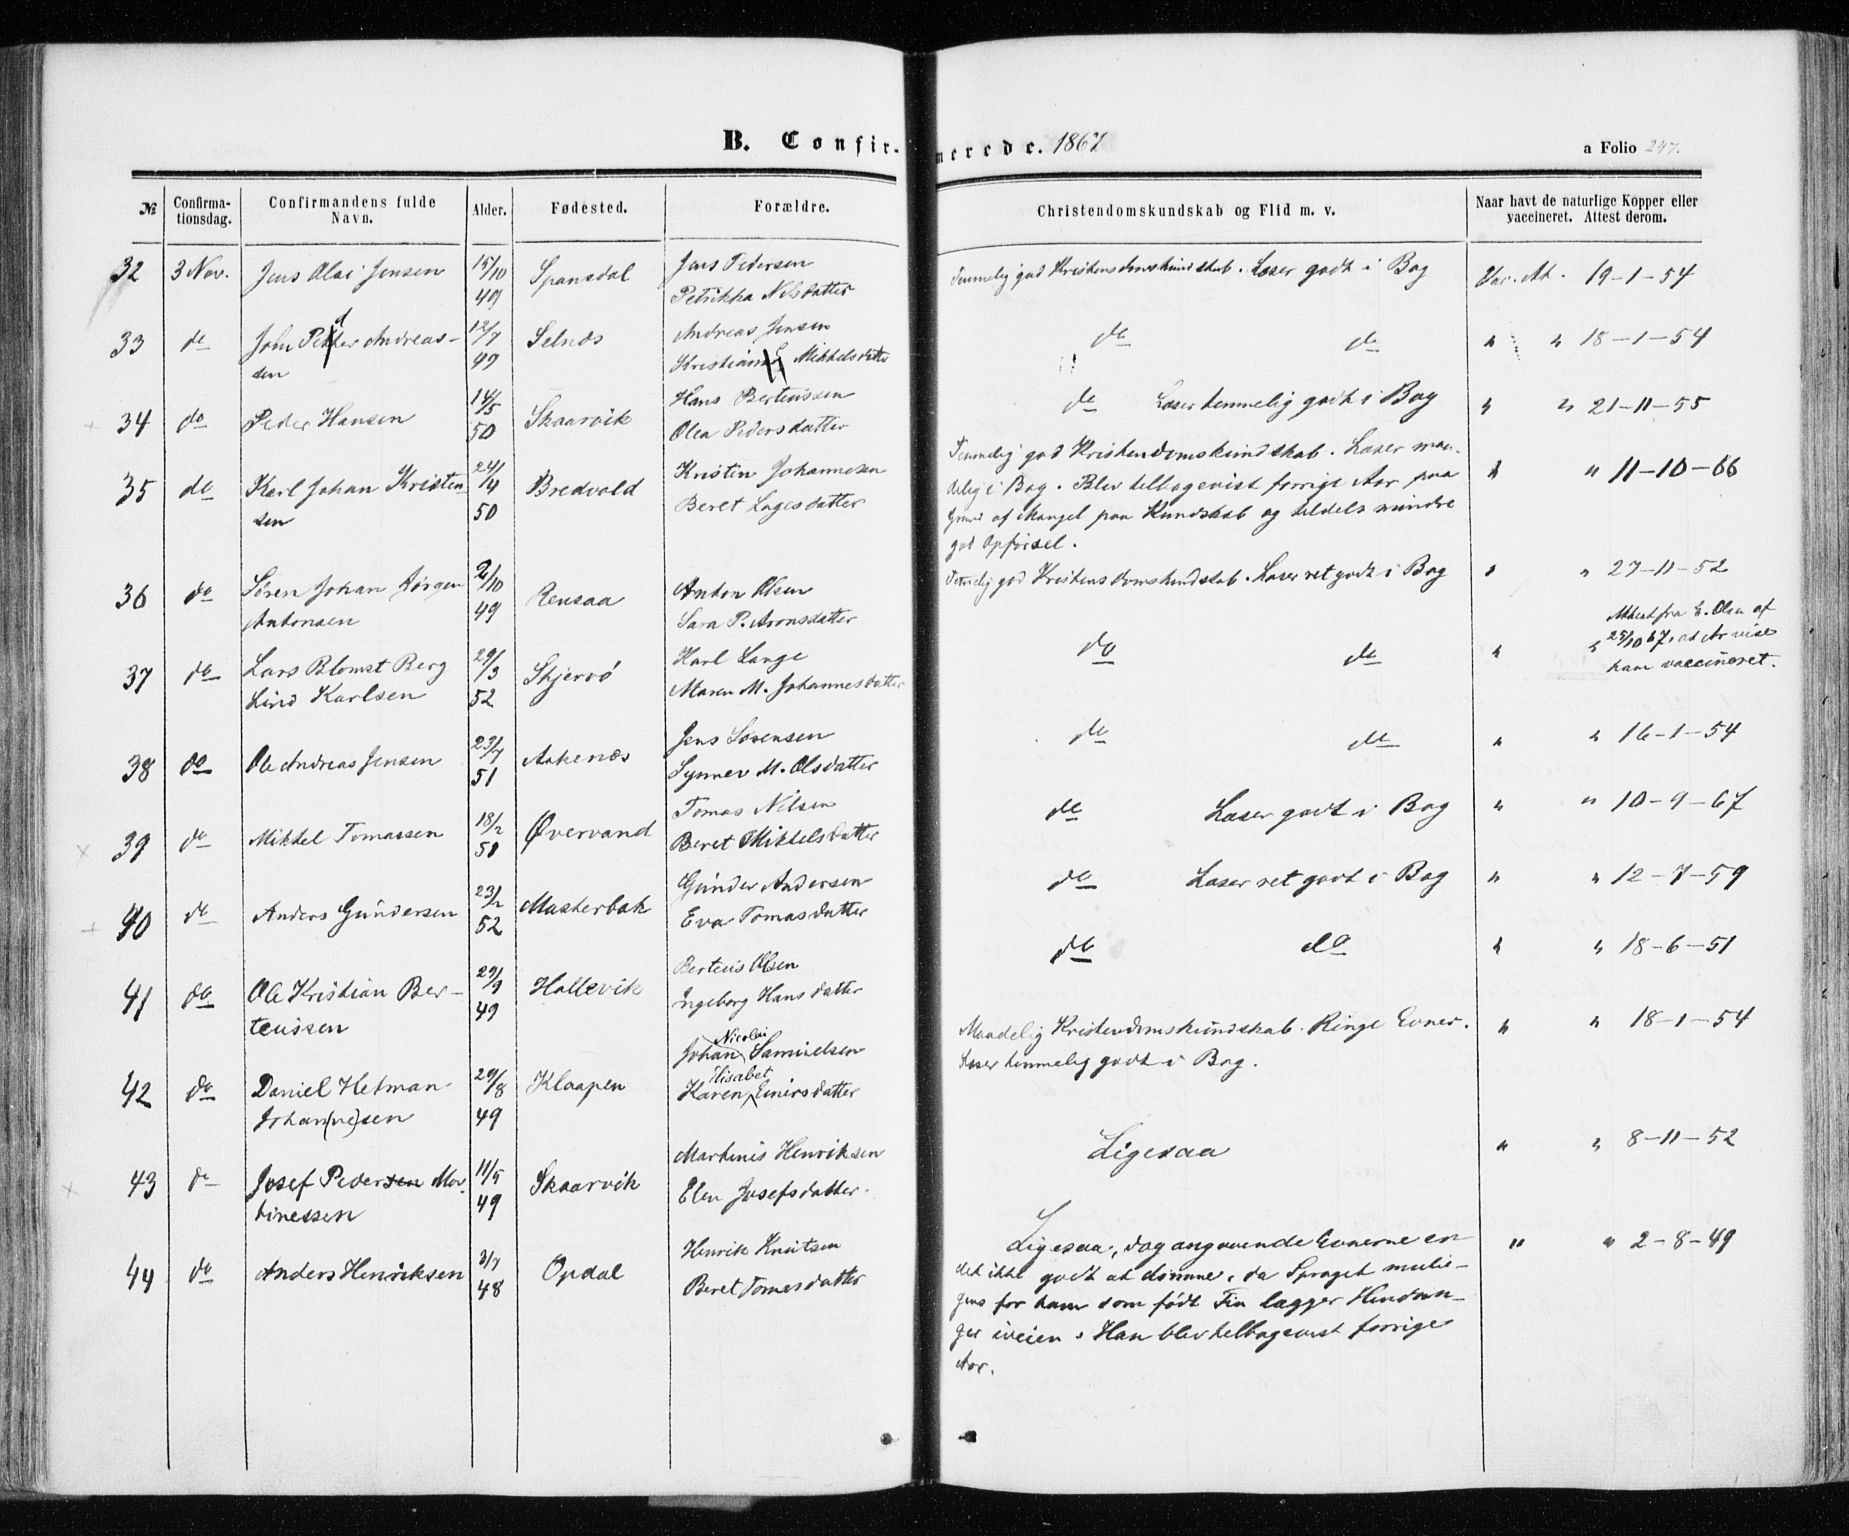 B. Confir-
merede. 1867
a Folio 247.
№ Confirma-tionsdag. Confirmandens fulde Navn. Alder. Fødested. Forældre. Christendomskundskab og Flid m. v. Naar havt de naturlige Kopper eller vaccineret. Attest derom.
32 3 Nov. Jens Olai Jensen 15/10 49 Spansdal Jens Pedersen
Petrikka Nilsdatter
Temmelig god Kristensdomskundskab. Læser godt i Bog Vac. At. 19-1-54
33 do John Petter Andreas-
sen 12/7 49 Selnæs Andreas Jensen
Mikkelsdatter
do do " " 18-1-54
34 do Peder Hansen 14/5 50 Skaarvik Hans Berteussen
Olea Pedersdatter
do Læser temmelig godt i Bog " " 21-11-55
35 do Karl Johan Kristen-
sen 24/4 50 Bredvold Kristen Johannesen
Beret Lagesdatter
Temmelig god Kristendomskundskab. Læser maa-
delig i Bog. Blev tilbagevist forrige Aar paa
Grund af Mangel paa Kundskab og tildels mindre
god Opførsel.
" " 11-10-66
36 do Søren Johan Jørgen
Antonsen 2/10 49 Rensaa Anton Olsen
Sara P. Aronsdatter
Temelig god Kristensdomskundskab. Læser ret godt i Bog " " 27-11-52
37 do Lars Blomst Berg
Lind Karlsen 29/3 52 Skjervø Karl Lange
Maren M. Johannesdatter
do do " "
Attest fra E. Olsen af
25/10 67, at Ar vise
ham vaccineret.
38 do Ole Andreas Jensen 23/7 51 Aakenæs Jens Sørensen
Synnev M. Olsdatter
do do " " 16-1-54
39 do Mikkel Tomassen 18/2 51 Øvervand Tomas Nilsen
Beret Mikkelsdatter
do Læser godt i Bog " " 10-9-67
40 do Anders Gundersen 23/2 52 Masterbak Gunder Andersen
Eva Tomasdatter
do Læser ret godt i Bog " " 12-7-59
41 do Ole Kristian Ber-
teussen 29/9 49 Hallevik Berteus Olsen
Ingeborg Hansdatter
do do " " 18-6-51
42 do Daniel Hetman
Johan(ne)sen 29/8 49 Klaapen Johan Nicolai Samuelsen
Karen Elisabet Einersdatter
Maadelig Kristendomskundskab. Ringe Evner.
Læser temmelig godt i Bog.
" " 18-1-54
43 do Josef Pedersen Mar-
tinessen 11/5 49 Skaarvik Martinis Henriksen
Elen Josefsdatter.
Ligesaa " " 8-11-52
44 do Anders Henriksen 3/7 48 Opdal Henrik Knutsen
Beret Tomesdatter
Ligesaa, dog angaaende Evnerne en
det ikke godt at dømme, da Sproget mulig-
gens for ham som født Fin lægger Hindrin-
ger iveien. Han blev tilbagevist forrige
Aar.
" " 2-8-49